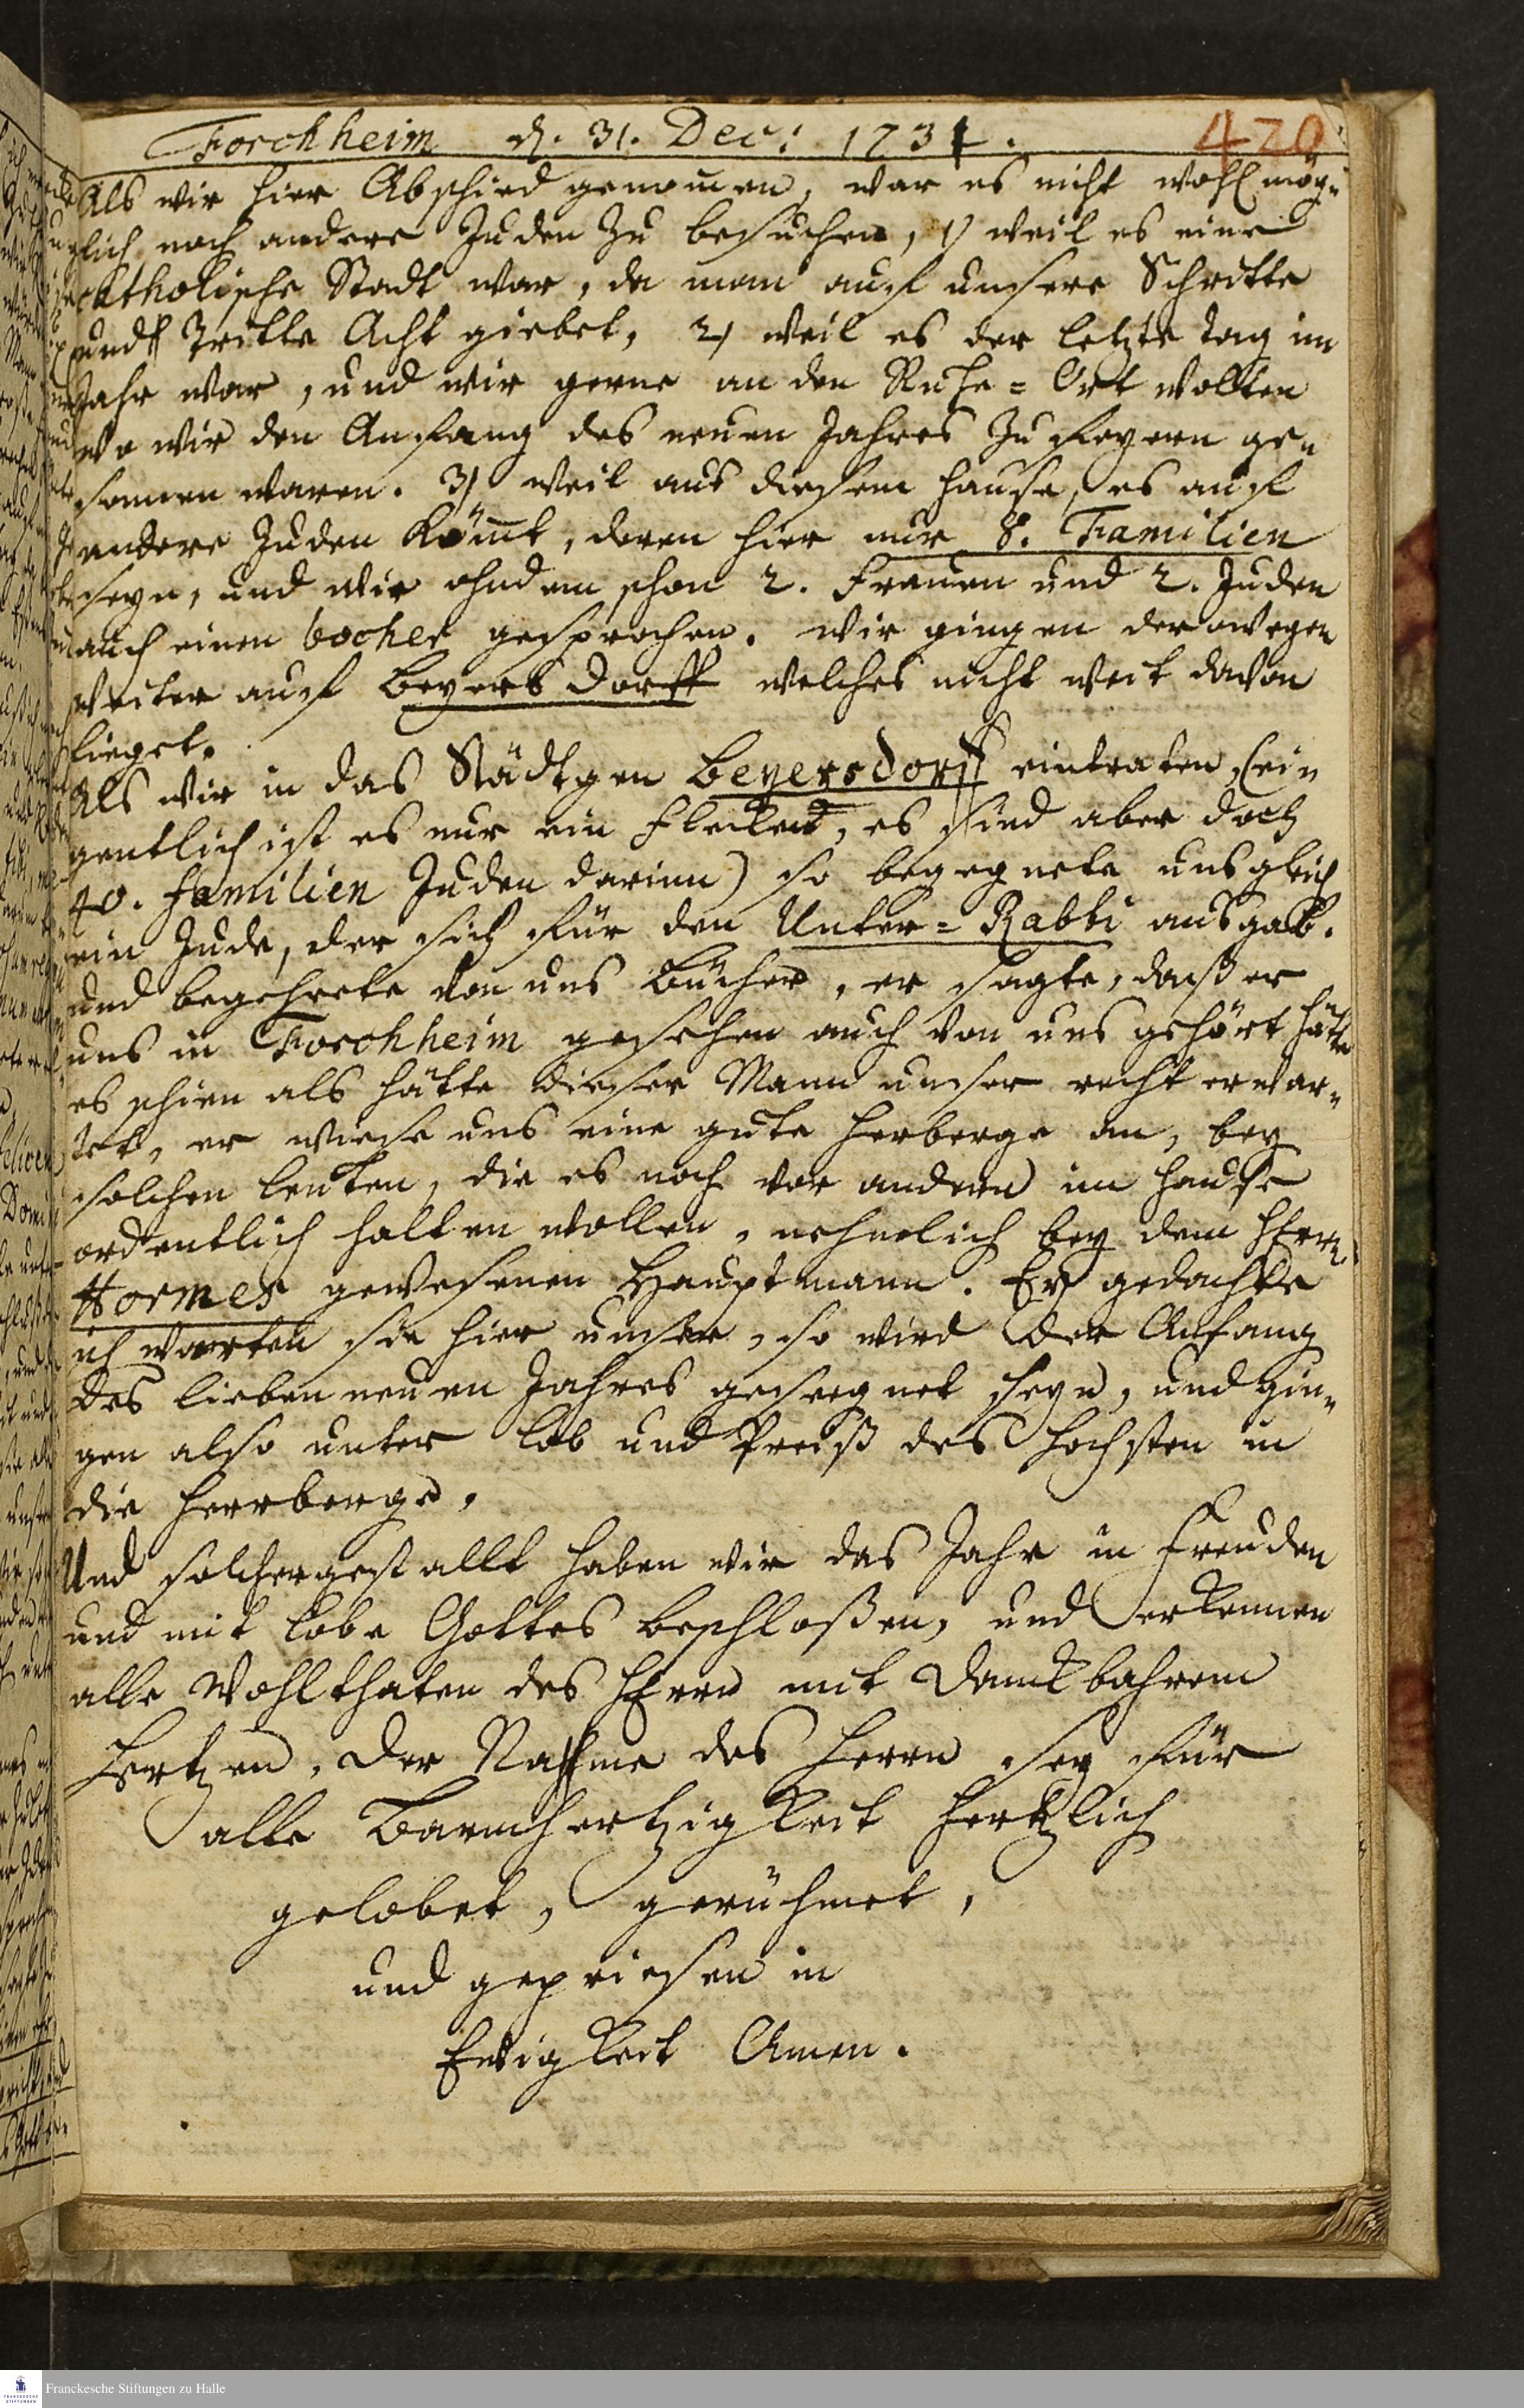 Forchheim d. 31. Dec: 1731.
420
Als wir hier Abschied genomen, war es nicht wohl mög„
lich noch andere Juden zu besuchen, 1) weil es eine
Catholische Stadt war, da man auf unsere Schritte
und Tritte Acht giebet, 2) weil es der letzte Tag im
Jahr war, und wir gerne an den Ruhe=Ort wolten
wo wir den Anfang des neuen Jahres zu feyern ge„
sonnen waren. 3) weil aus diesem Hause, es auf
andere Juden kömt, deren hier nur 8. Familien
seyn, und wir ohndem schon 2. Frauen und 2. Juden
auch einen bocher gesprochen. Wir gingen derowegen
weiter auf Beyersdorff welches nicht weit davon
lieget.
Als wir in das Städtgen Beyersdorff eintraten, (ei„
gentlich ist es nur ein Flecken, es sind aber doch
40. Familien Juden darinn) so begegnete uns gleich
ein Jude, der sich für den Unter=Rabbi ausgab.
und begehrete von uns Bücher, er sagte, daß er
uns in Forchheim gesehen auch von uns gehört hätte
es schien als hätte dieser Mann unser recht erwar„
tet, er wiese uns eine gute Herberge an, bey
solchen Leuten, die es noch vor andern im Hause
ordentlich halten wollen, nehmlich bey dem Herrn
Hormes gewesenen Hauptmann. Ey gedachte
ich warten sie hier unser, so wird der Anfang
des lieben neuen Jahres gesegnet seyn, und gin„
gen also unter Lob und Preiß des Höchsten in
die Herberge.
Und solchergestallt haben wir das Jahr in Freuden
und mit Lobe Gottes beschloßen, und erkennen
alle Wohlthaten des HErrn mit danckbahrem
Hertzen, der Nahme des Herrn sey für
alle Barmhertzigkeit hertzlich
gelobet, gerühmet,
und gepriesen in
Ewigkeit Amen.
Franckesche Stiftungen zu Halle